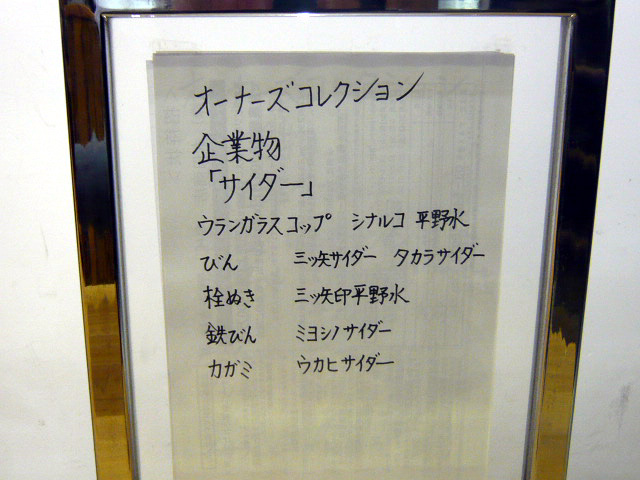 オーナーズコレクション
企業物
「サイダー」
ウランガラスコップ シナルコ 平野水
びん 三ッ矢サイダー タカラサイダー
栓ぬき 三ッ矢印平野水
鉄びん ミヨシノサイダー
カガミ ウカヒサイダー